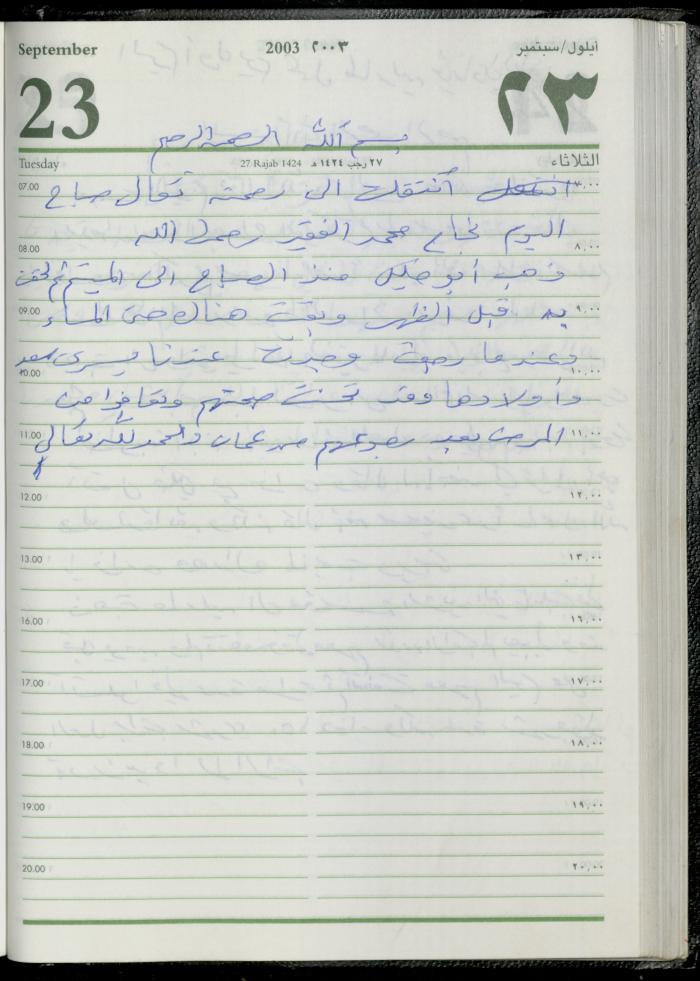 September 2003 ٢٠٠٣ أيلول/سبتمبر
23 ٢٣
بسم الله الرحمن الرحيم
Tuesday 27 Rajab 1424 ٢٧ رجب ١٤٢٤ هـ الثلاثاء
07.00 ٧,٠٠
انتقلت أنتقلت الى رحمة تعالى صباح
اليوم نجاح محمد الفقير رحمها الله
08.00 ٨,٠٠
ذهب أبو منذ الصباح الى الميتم ثم لحقت
09.00 ٩,٠٠
به قبل الظهر وبقيت هناك حتى المساء
وعندما رجعت وجدت عندنا يسرى سعد
10.00 ١٠,٠٠
وأولادها وقد تحسنت صحتهم وتعافوا من
11.00 ١١,٠٠
المرض بعد رجوعهم من عمان والحمد لله تعالى
12.00 ١٢,٠٠
13.00 ١٣,٠٠
16.00 ١٦,٠٠
17.00 ١٧,٠٠
18.00 ١٨,٠٠
19.00 ١٩,٠٠
20.00 ٢٠,٠٠